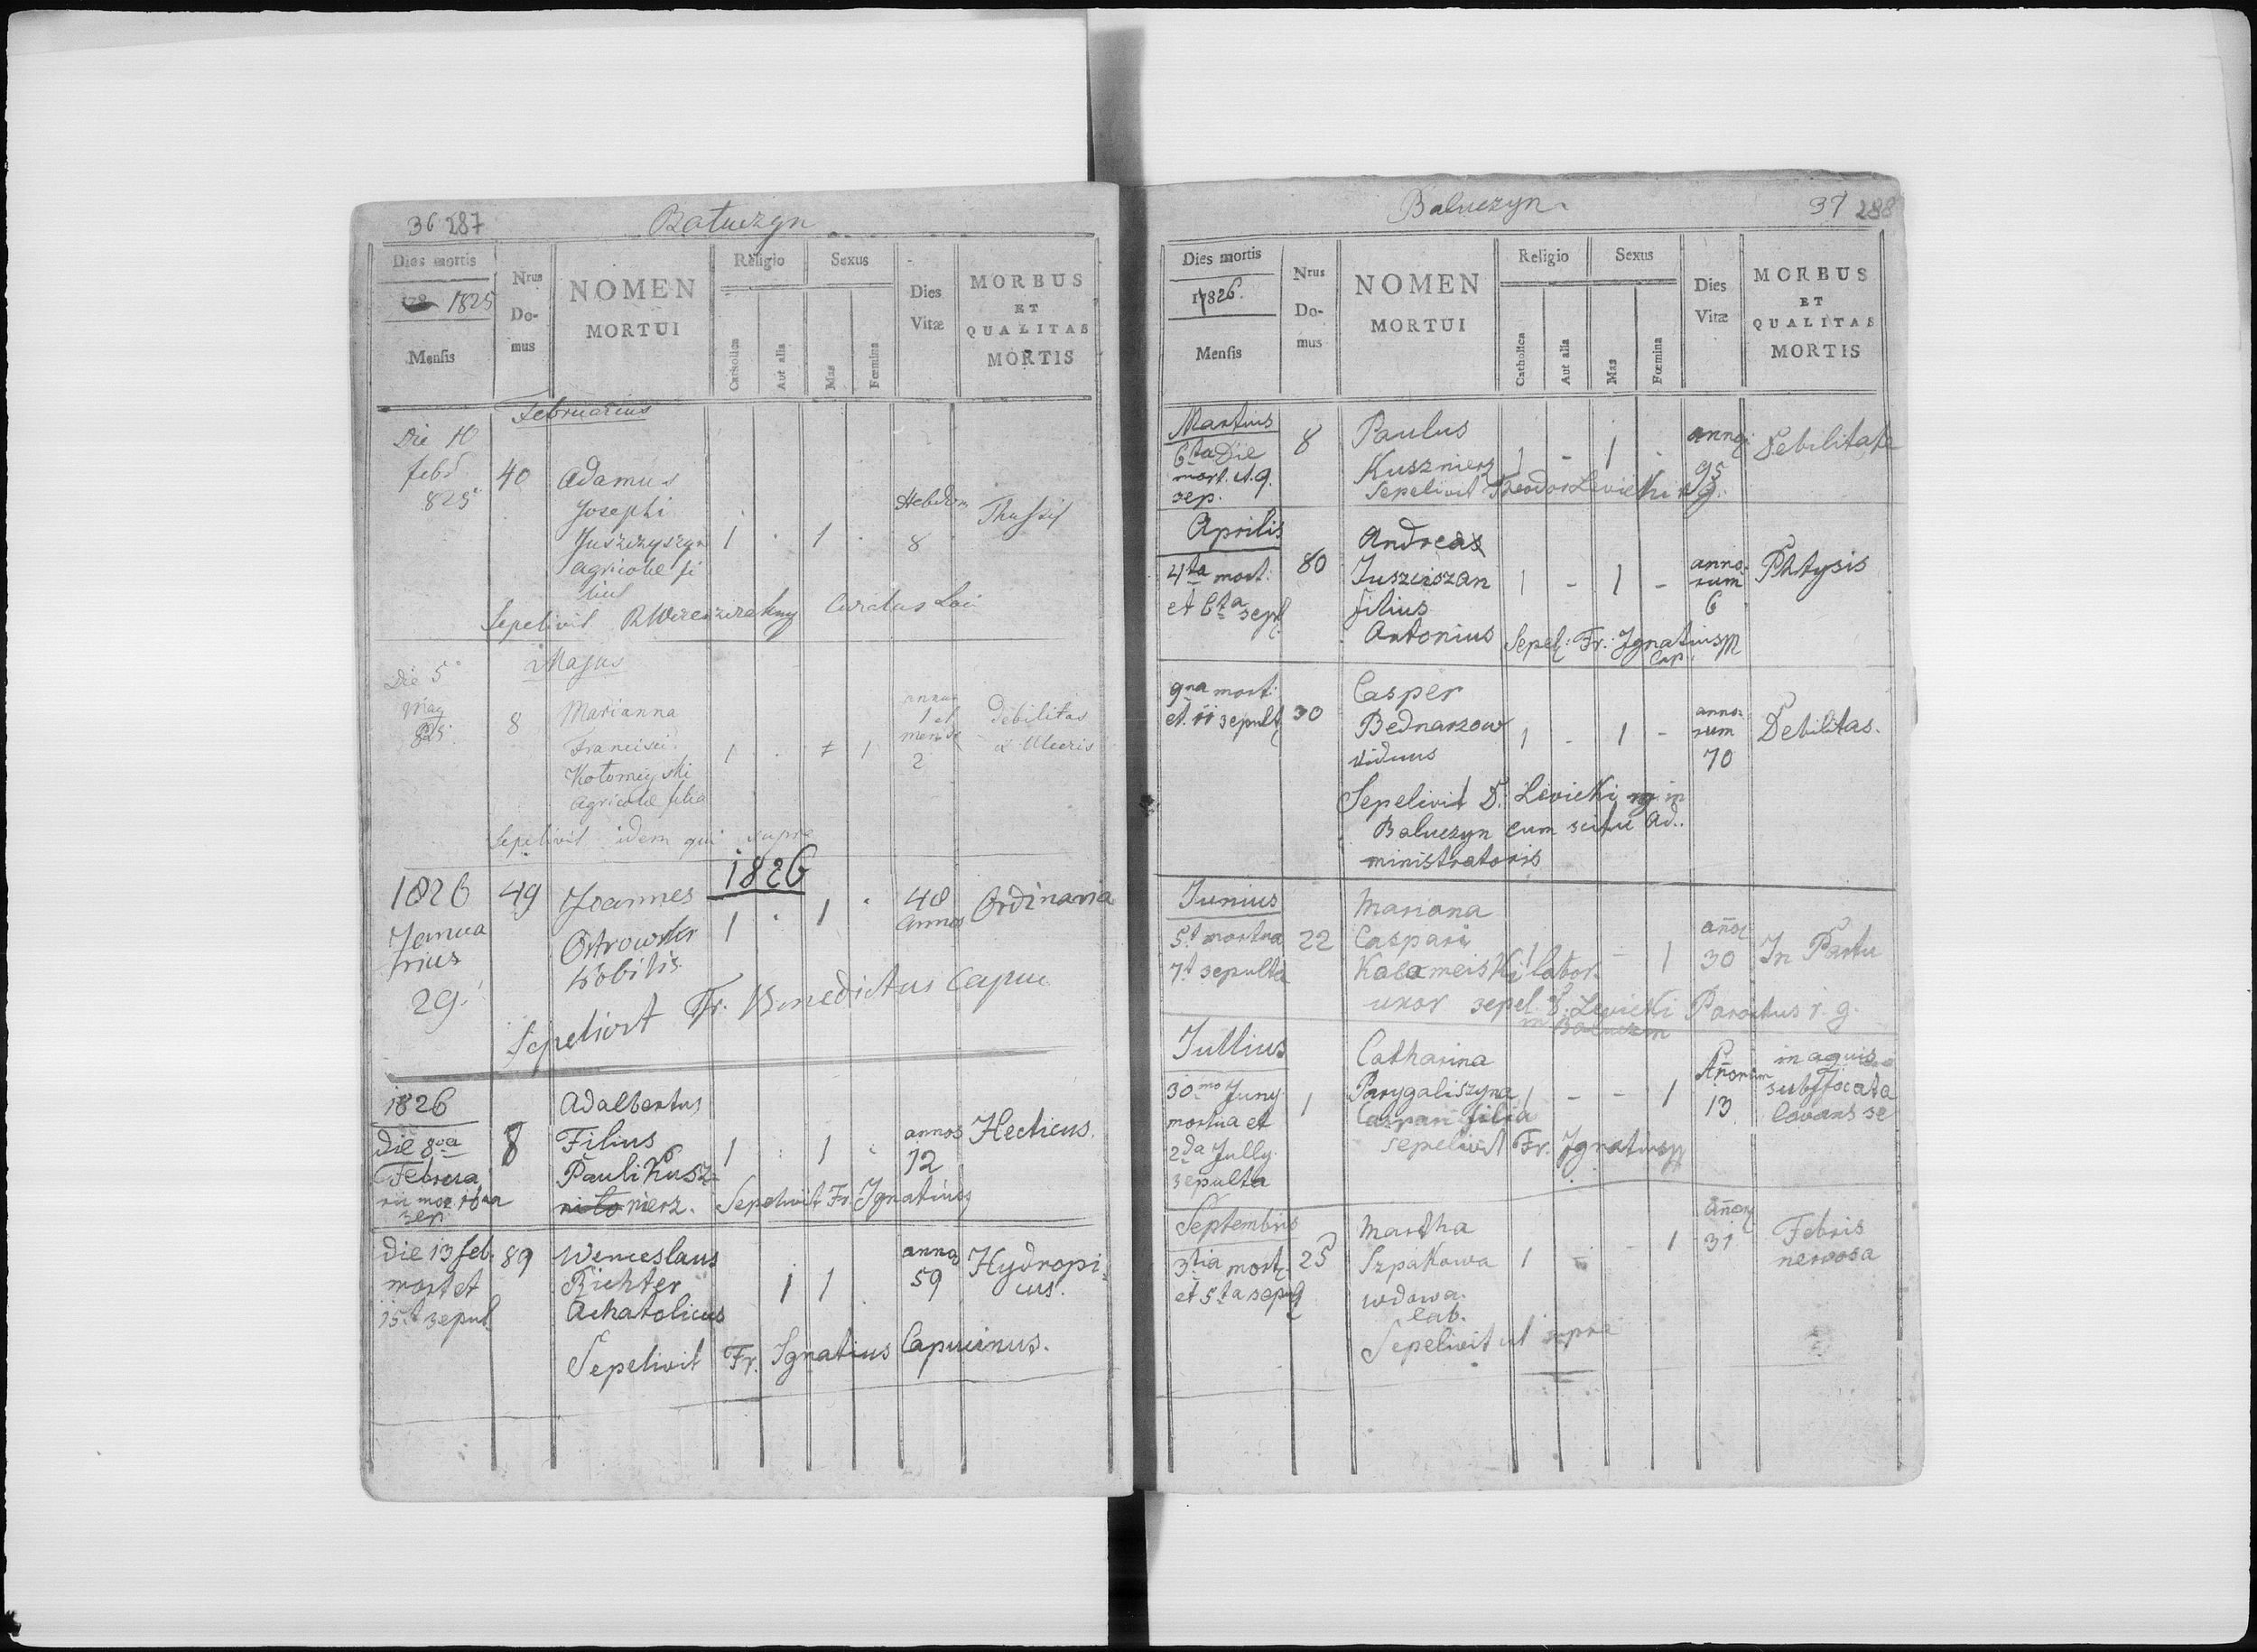 36 287
Batuczyn
Dies mortis
1825
Mensis
Nrus
Do-
mus
NOMEN
MORTUI
Religio
Catholica
Aut alia
Sexus
Mas
Fœmina
Dies
Vitæ
MORBUS
ET
QUALITAS
MORTIS
Februarius
Die 10
febr
825
40
Adamus
Josephi
Juszczyszyn
agricolae fi
lius
1 . 1 .
Hebdom
8
Thussis
Sepelivit R Curatus Loci
Majus
Die 5
Maj
825
8
Marianna
Francisci
Kołomiyski
Agricolae filia
1 . 1
annus
1 et
mense
2
debilitas
Ulceris
Sepelivit idem qui supra
1826
1826
Janua
rius
29.
49
Joannes
Ostrowski
Nobilis
1 . 1 .
48
annos
Ordinaria
Sepelivit Fr. Benedictus Capuc
1826
die 8va
Februa
rii
sep
8
Adalbertus
Filius
Pauli Kusz-
nierz.
1 . 1 .
annos
12
Hecticus.
Sepelivit Fr. Ignatius
die 13 feb.
mort et
15t sepul
89
Wenceslaus
Richter
Achatolicus
1 1
annos
59
Hydropi-
cus.
Sepelivit Fr. Ignatius Capucinus.
Baluczyn
37 288
Dies mortis
1826.
Mensis
Nrus
Do-
mus
NOMEN
MORTUI
Religio
Catholica
Aut alia
Sexus
Mas
Fœmina
Dies
Vitæ
MORBUS
ET
QUALITAS
MORTIS
Martius
6ta Die
mort. et 9.
sep.
8
Paulus
Kusznierz
1 - 1 -
annor
95
Debilitate
Sepelivit Theodor Levicki
Aprilis
4ta mort:
et 6ta sept
80
Andreas
Juszciszan
filius
Antonius
1 - 1 -
anno-
rum
6
Phtysis
Sepel: Fr: Ignatius
Cap:
9na mort:
et 11 sepult
30
Casper
Bednarzow
viduus
1 - 1 -
anno-
rum
70
Debilitas.
Sepelivit D: Levicki in
Baluczyn cum scitu Ad..
ministratoris
Junius
5t mortua
7t sepulta
22
Mariana
Caspari
Kalameiski labor.
uxor sepel D: Levicki Parochus r. g.
in Baluczin
1 - 1
añor
30
In Partu
Jullius
30mo Juny
mortua et
2da Jully
sepulta
1
Catharina
Parygaliszyna
Caspari filia
sepelivit Fr. Ignatius
1 - - 1
Añorum
13
in aquis
subffocata
lavans se
Septembris
3tia mort
et 5ta sepul
25
Martha
Szpakowa
wdowa
lab.
Sepelivit ut supra
1 - - 1
añor
31
Febris
nervosa